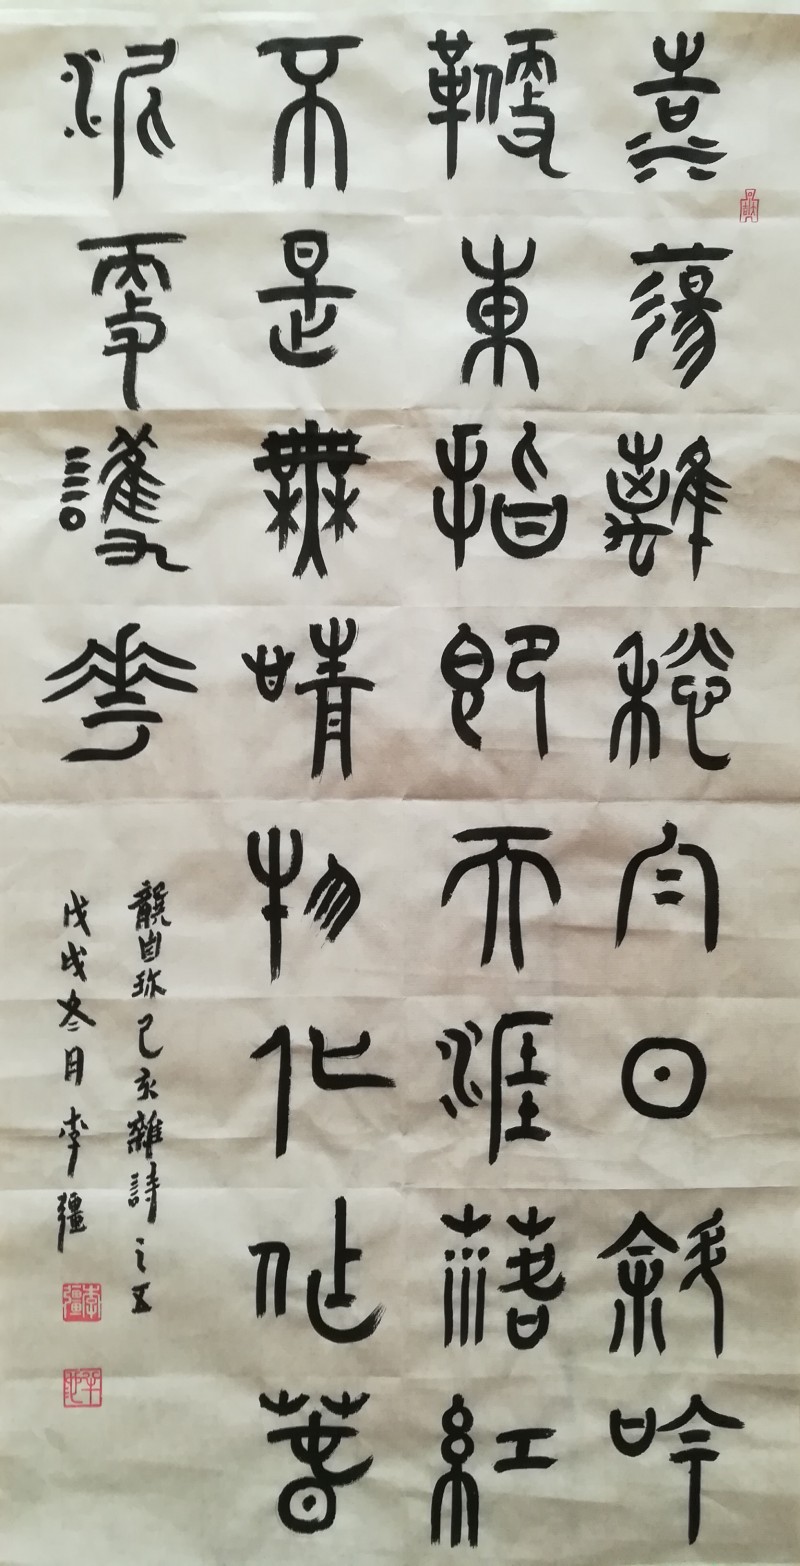 浩蕩離愁白日斜吟
鞭東指即天涯落紅
不是無情物化作春
泥更護花
龔自珍己亥雜詩之五
戊戌冬月李疆
李疆